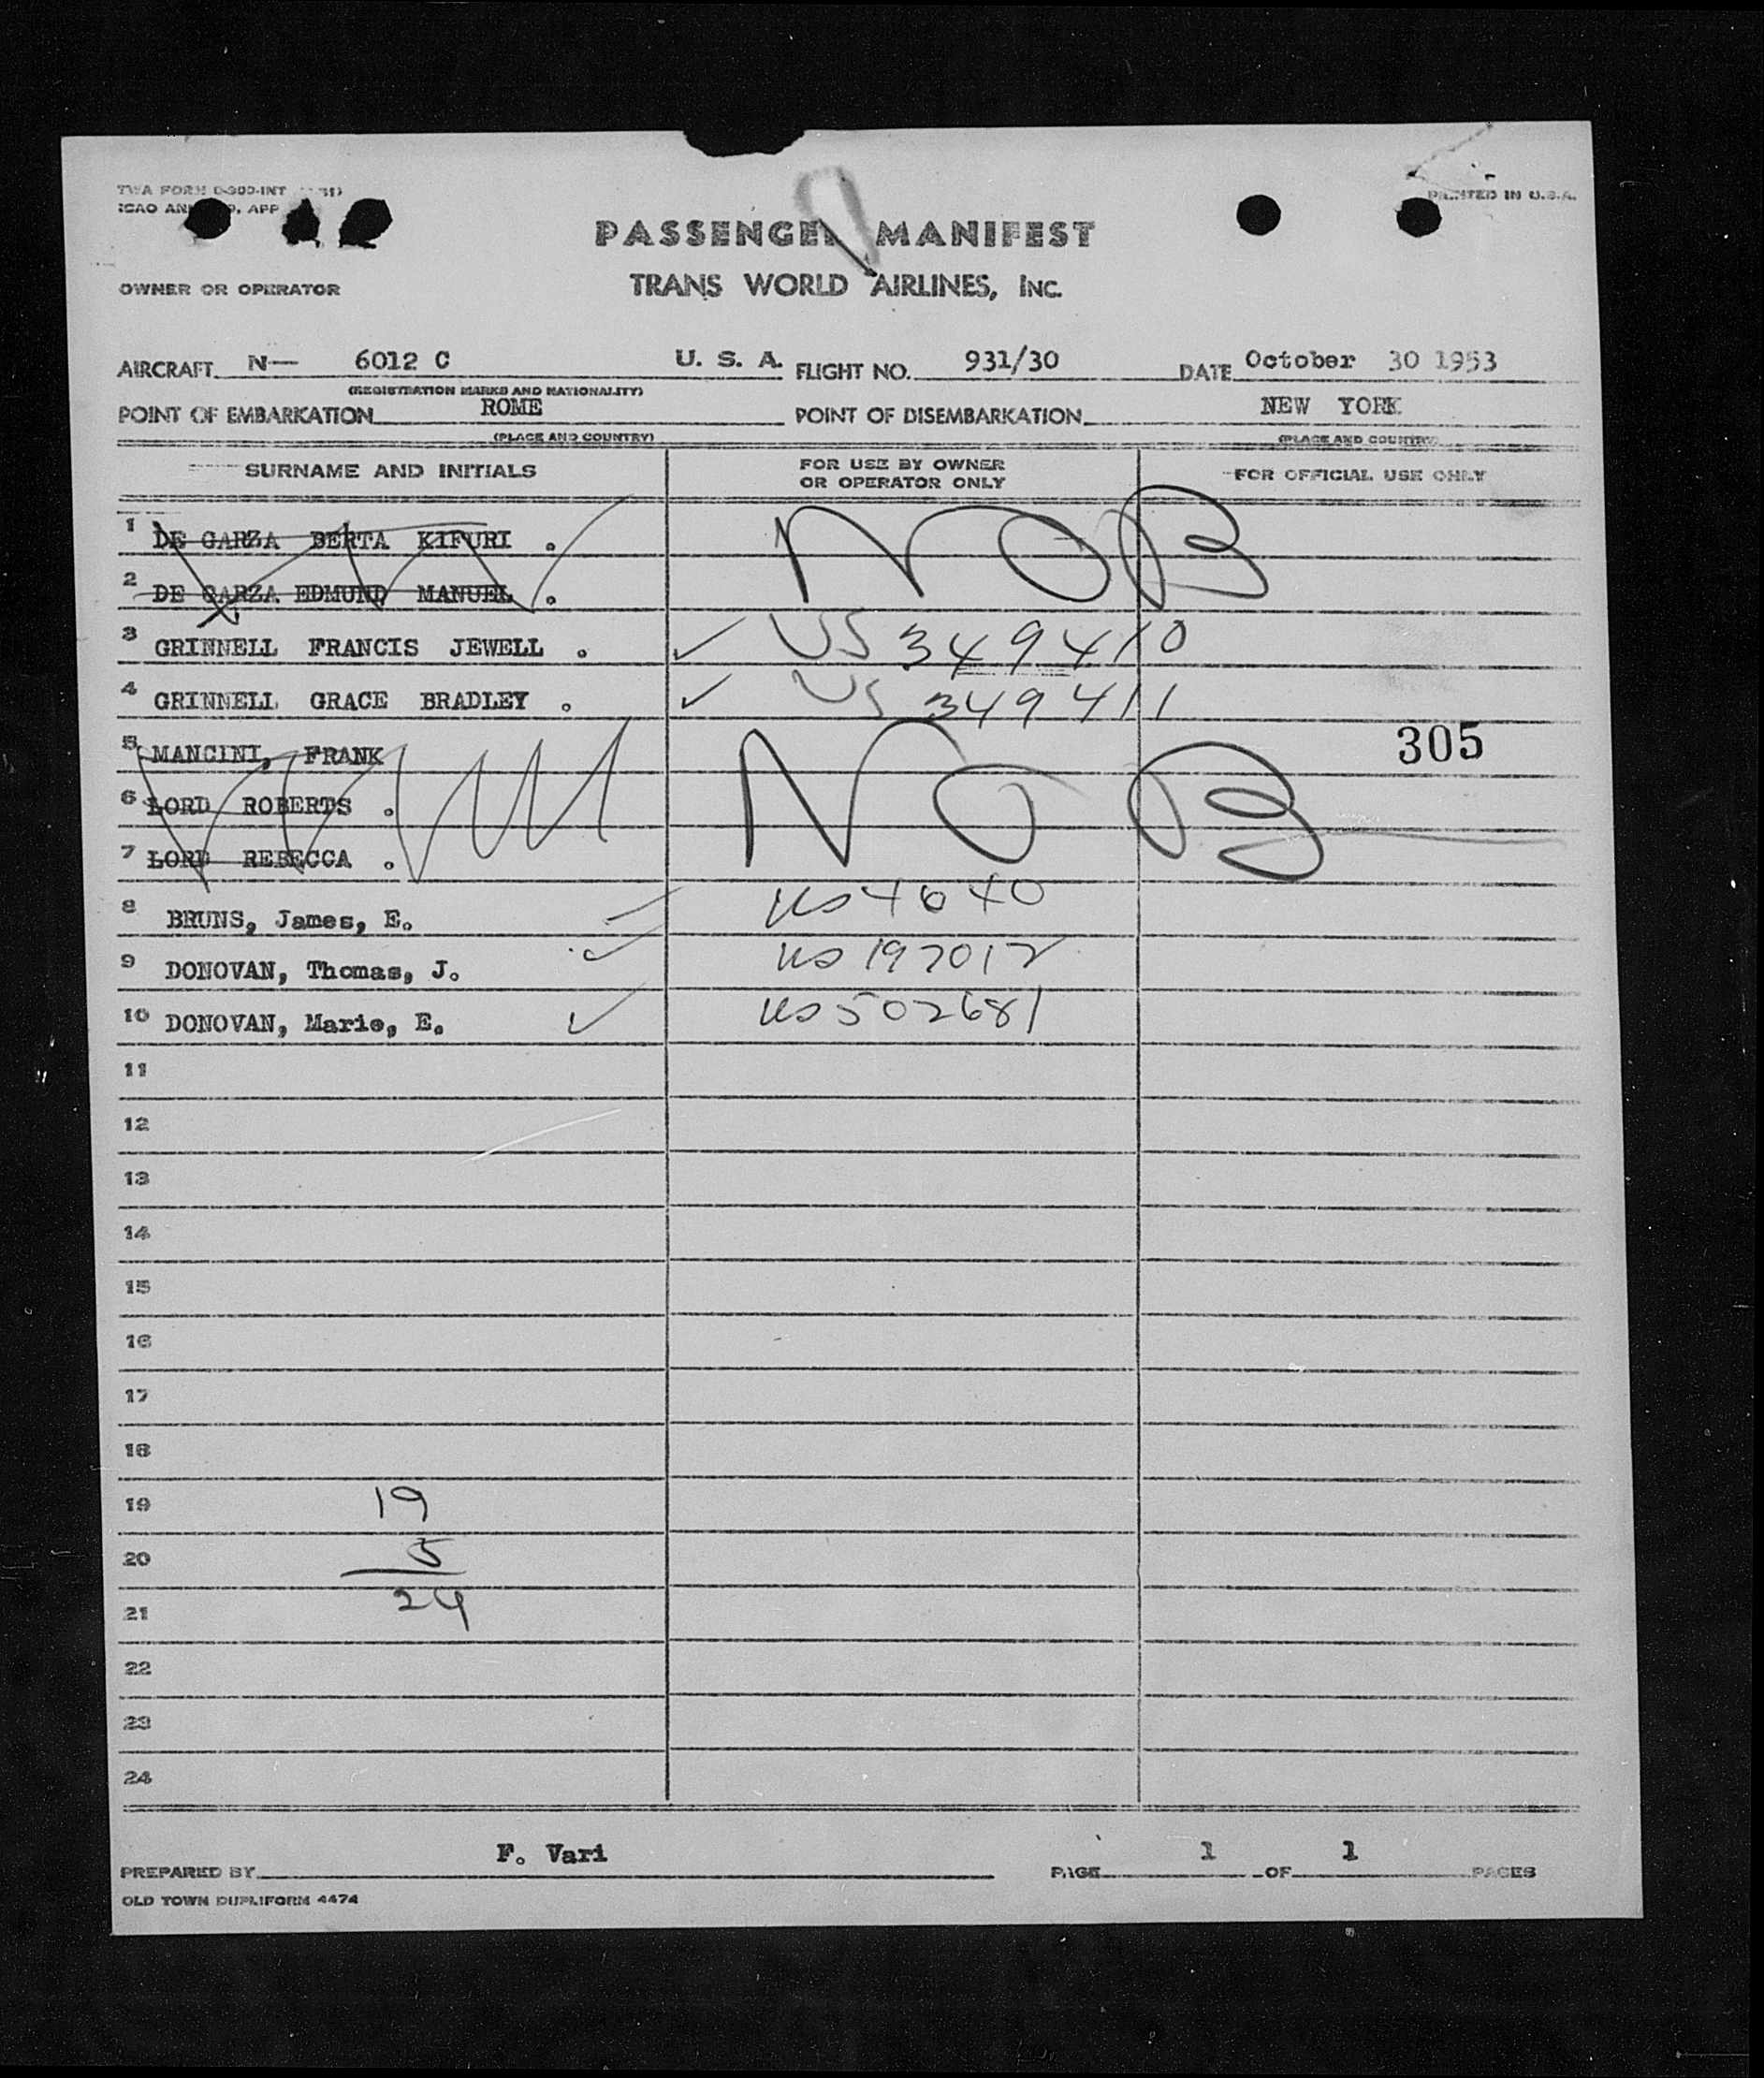 TWA FORM
PRINTED IN U.S.A.
ICAO
PASSENGER MANIFEST
OWNER OR OPERATOR
TRANS WORLD AIRLINES, INC.
AIRCRAFT N— 6012 C U. S. A. FLIGHT NO. 931/30 DATE October 30 1953
(REGISTRATION MARKS AND NATIONALITY)
POINT OF EMBARKATION ROME POINT OF DISEMBARKATION NEW YORK
(PLACE AND COUNTRY) (PLACE AND COUNTRY)
SURNAME AND INITIALS FOR USE BY OWNER OR OPERATOR ONLY FOR OFFICIAL USE ONLY
1 DE GARZA BERTA KIFURI . NOB
2 DE GARZA EDMUND MANUEL .
3 GRINNELL FRANCIS JEWELL . ✓ US 349410
4 GRINNELL GRACE BRADLEY . ✓ US 349411
5 MANCINI, FRANK NOB 305
6 LORD ROBERTS .
7 LORD REBECCA .
8 BRUNS, James, E. ✓ US 4640
9 DONOVAN, Thomas, J. ✓ US 197012
10 DONOVAN, Marie, E. ✓ US 502681
11
12
13
14
15
16
17
18
19 19
20 5
21 24
22
23
24
PREPARED BY F. Vari PAGE 1 OF 1 PAGES
OLD TOWN DUPLIFORM 4474